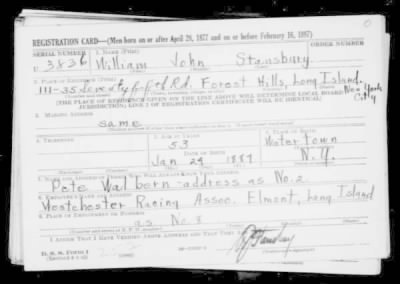 REGISTRATION CARD—(Men born on or after April 28, 1877 and on or before February 16, 1897)
SERIAL NUMBER 1. NAME (Print) ORDER NUMBER
U 3836 William John Stansbury
2. PLACE OF RESIDENCE (Print)
111-35 Seventy fifth Rd. Forest Hills, Long Island. New York City
[THE PLACE OF RESIDENCE GIVEN ON THE LINE ABOVE WILL DETERMINE LOCAL BOARD
JURISDICTION; LINE 2 OF REGISTRATION CERTIFICATE WILL BE IDENTICAL]
3. MAILING ADDRESS
same
4. TELEPHONE 5. AGE IN YEARS 6. PLACE OF BIRTH
53 Watertown
DATE OF BIRTH
Jan 24 1889 N.Y.
7. NAME AND ADDRESS OF PERSON WHO WILL ALWAYS KNOW YOUR ADDRESS
Pete Walborn - address as No. 2
8. EMPLOYER'S NAME AND ADDRESS
Westchester Racing Assoc. Elmont, Long Island
9. PLACE OF EMPLOYMENT OR BUSINESS
as No. 8
I AFFIRM THAT I HAVE VERIFIED ABOVE ANSWERS AND THAT THEY ARE TRUE.
D. S. S. Form 1